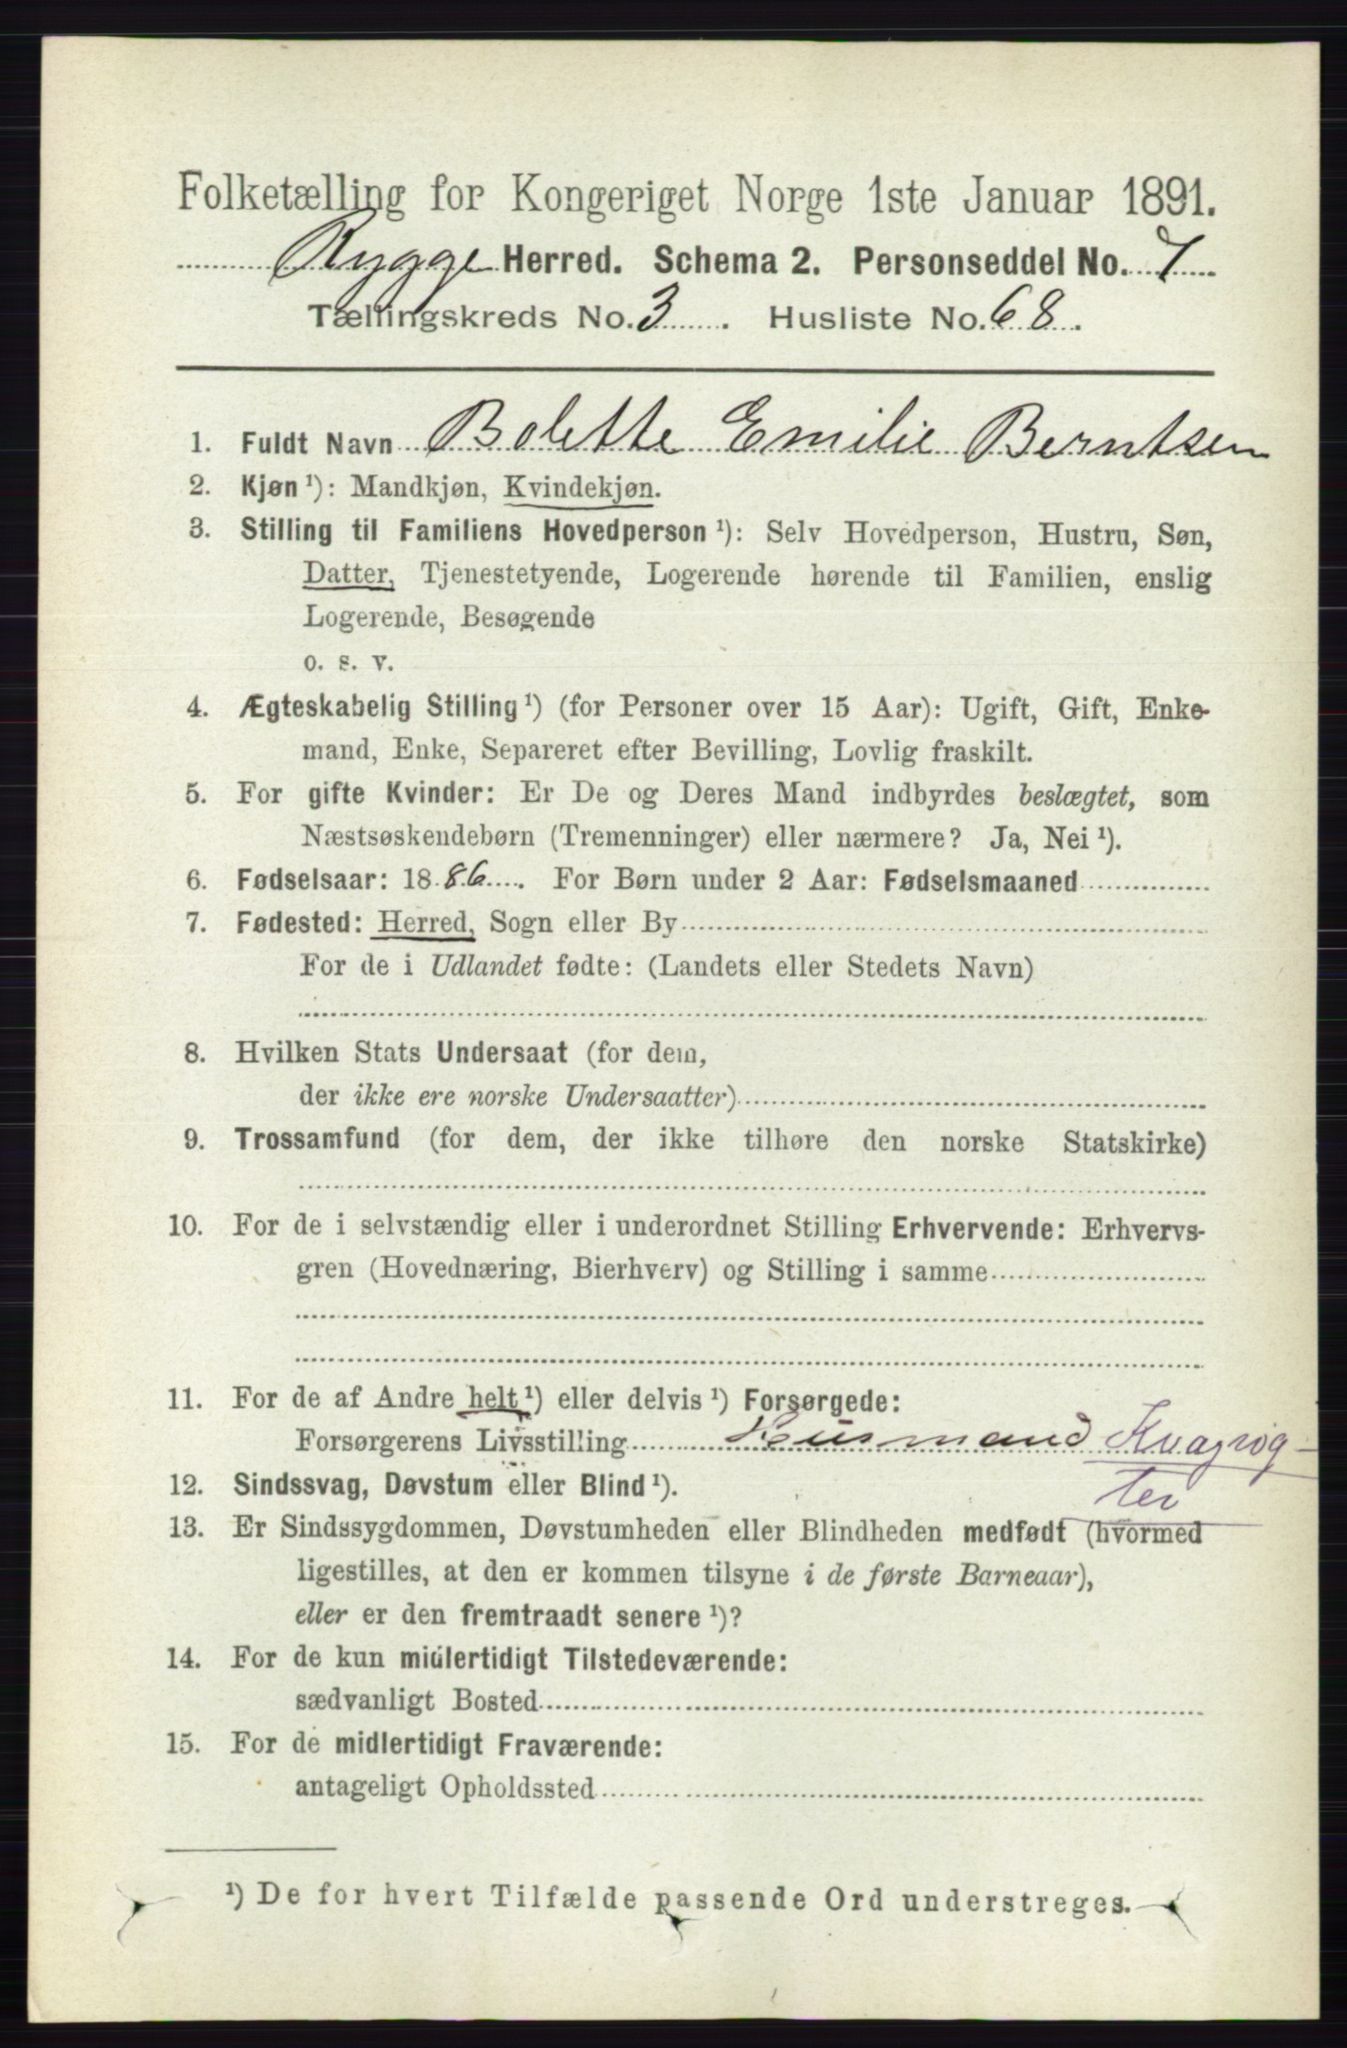 Folketælling for Kongeriget Norge 1ste Januar 1891.
Rygge Herred. Schema 2. Personseddel No. 7
Tællingskreds No. 3. Husliste No. 68.
1. Fuldt Navn Bolette Emilie Berntsen
2. Kjøn ¹): Mandkjøn, Kvindekjøn.
3. Stilling til Familiens Hovedperson ¹): Selv Hovedperson, Hustru, Søn,
Datter, Tjenestetyende, Logerende hørende til Familien, enslig
Logerende, Besøgende
o. s. v.
4. Ægteskabelig Stilling ¹) (for Personer over 15 Aar): Ugift, Gift, Enke-
mand, Enke, Separeret efter Bevilling, Lovlig fraskilt.
5. For gifte Kvinder: Er De og Deres Mand indbyrdes beslægtet, som
Næstsøskendebørn (Tremenninger) eller nærmere? Ja, Nei ¹).
6. Fødselsaar: 1886. For Børn under 2 Aar: Fødselsmaaned
7. Fødested: Herred, Sogn eller By
For de i Udlandet fødte: (Landets eller Stedets Navn)
8. Hvilken Stats Undersaat (for dem,
der ikke ere norske Undersaatter)
9. Trossamfund (for dem, der ikke tilhøre den norske Statskirke)
10. For de i selvstændig eller i underordnet Stilling Erhvervende: Erhvervs-
gren (Hovednæring, Bierhverv) og Stilling i samme
11. For de af Andre helt ¹) eller delvis ¹) Forsørgede:
Forsørgerens Livsstilling Husmand Kvægrøg-
ter
12. Sindssvag, Døvstum eller Blind ¹).
13. Er Sindssygdommen, Døvstumheden eller Blindheden medfødt (hvormed
ligestilles, at den er kommen tilsyne i de første Barneaar),
eller er den fremtraadt senere ¹)?
14. For de kun midlertidigt Tilstedeværende:
sædvanligt Bosted
15. For de midlertidigt Fraværende:
antageligt Opholdssted
¹) De for hvert Tilfælde passende Ord understreges.